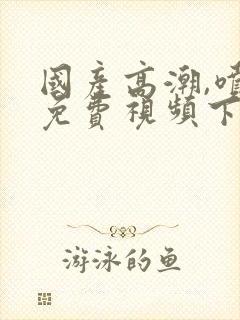 國產高潮,噴
免費視頻下
游泳的鱼